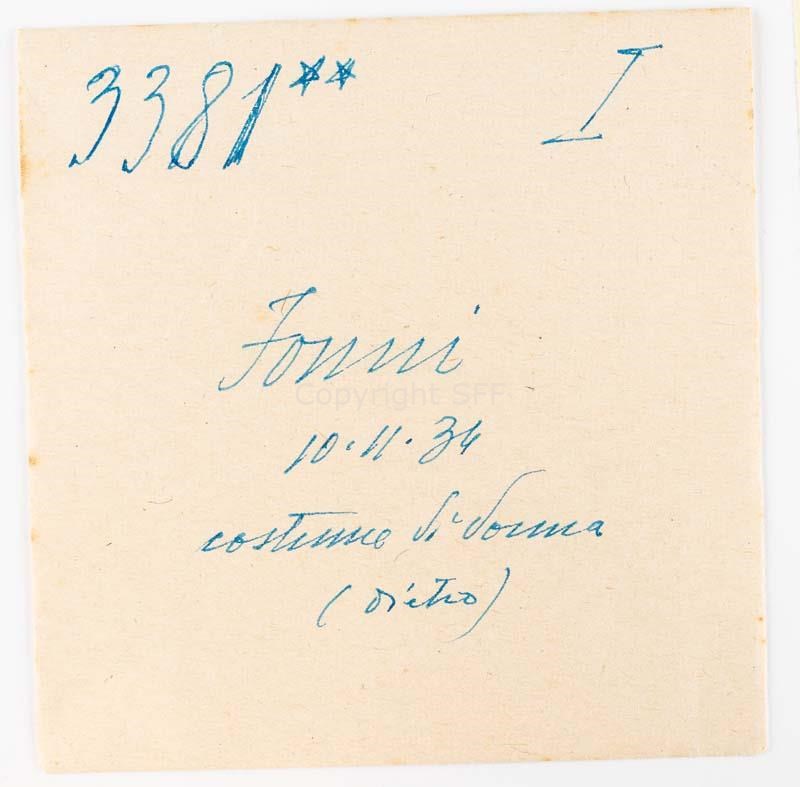 3381** I
Fonni
Copyright SFF
10.11.34
costume di donna
(dietro)